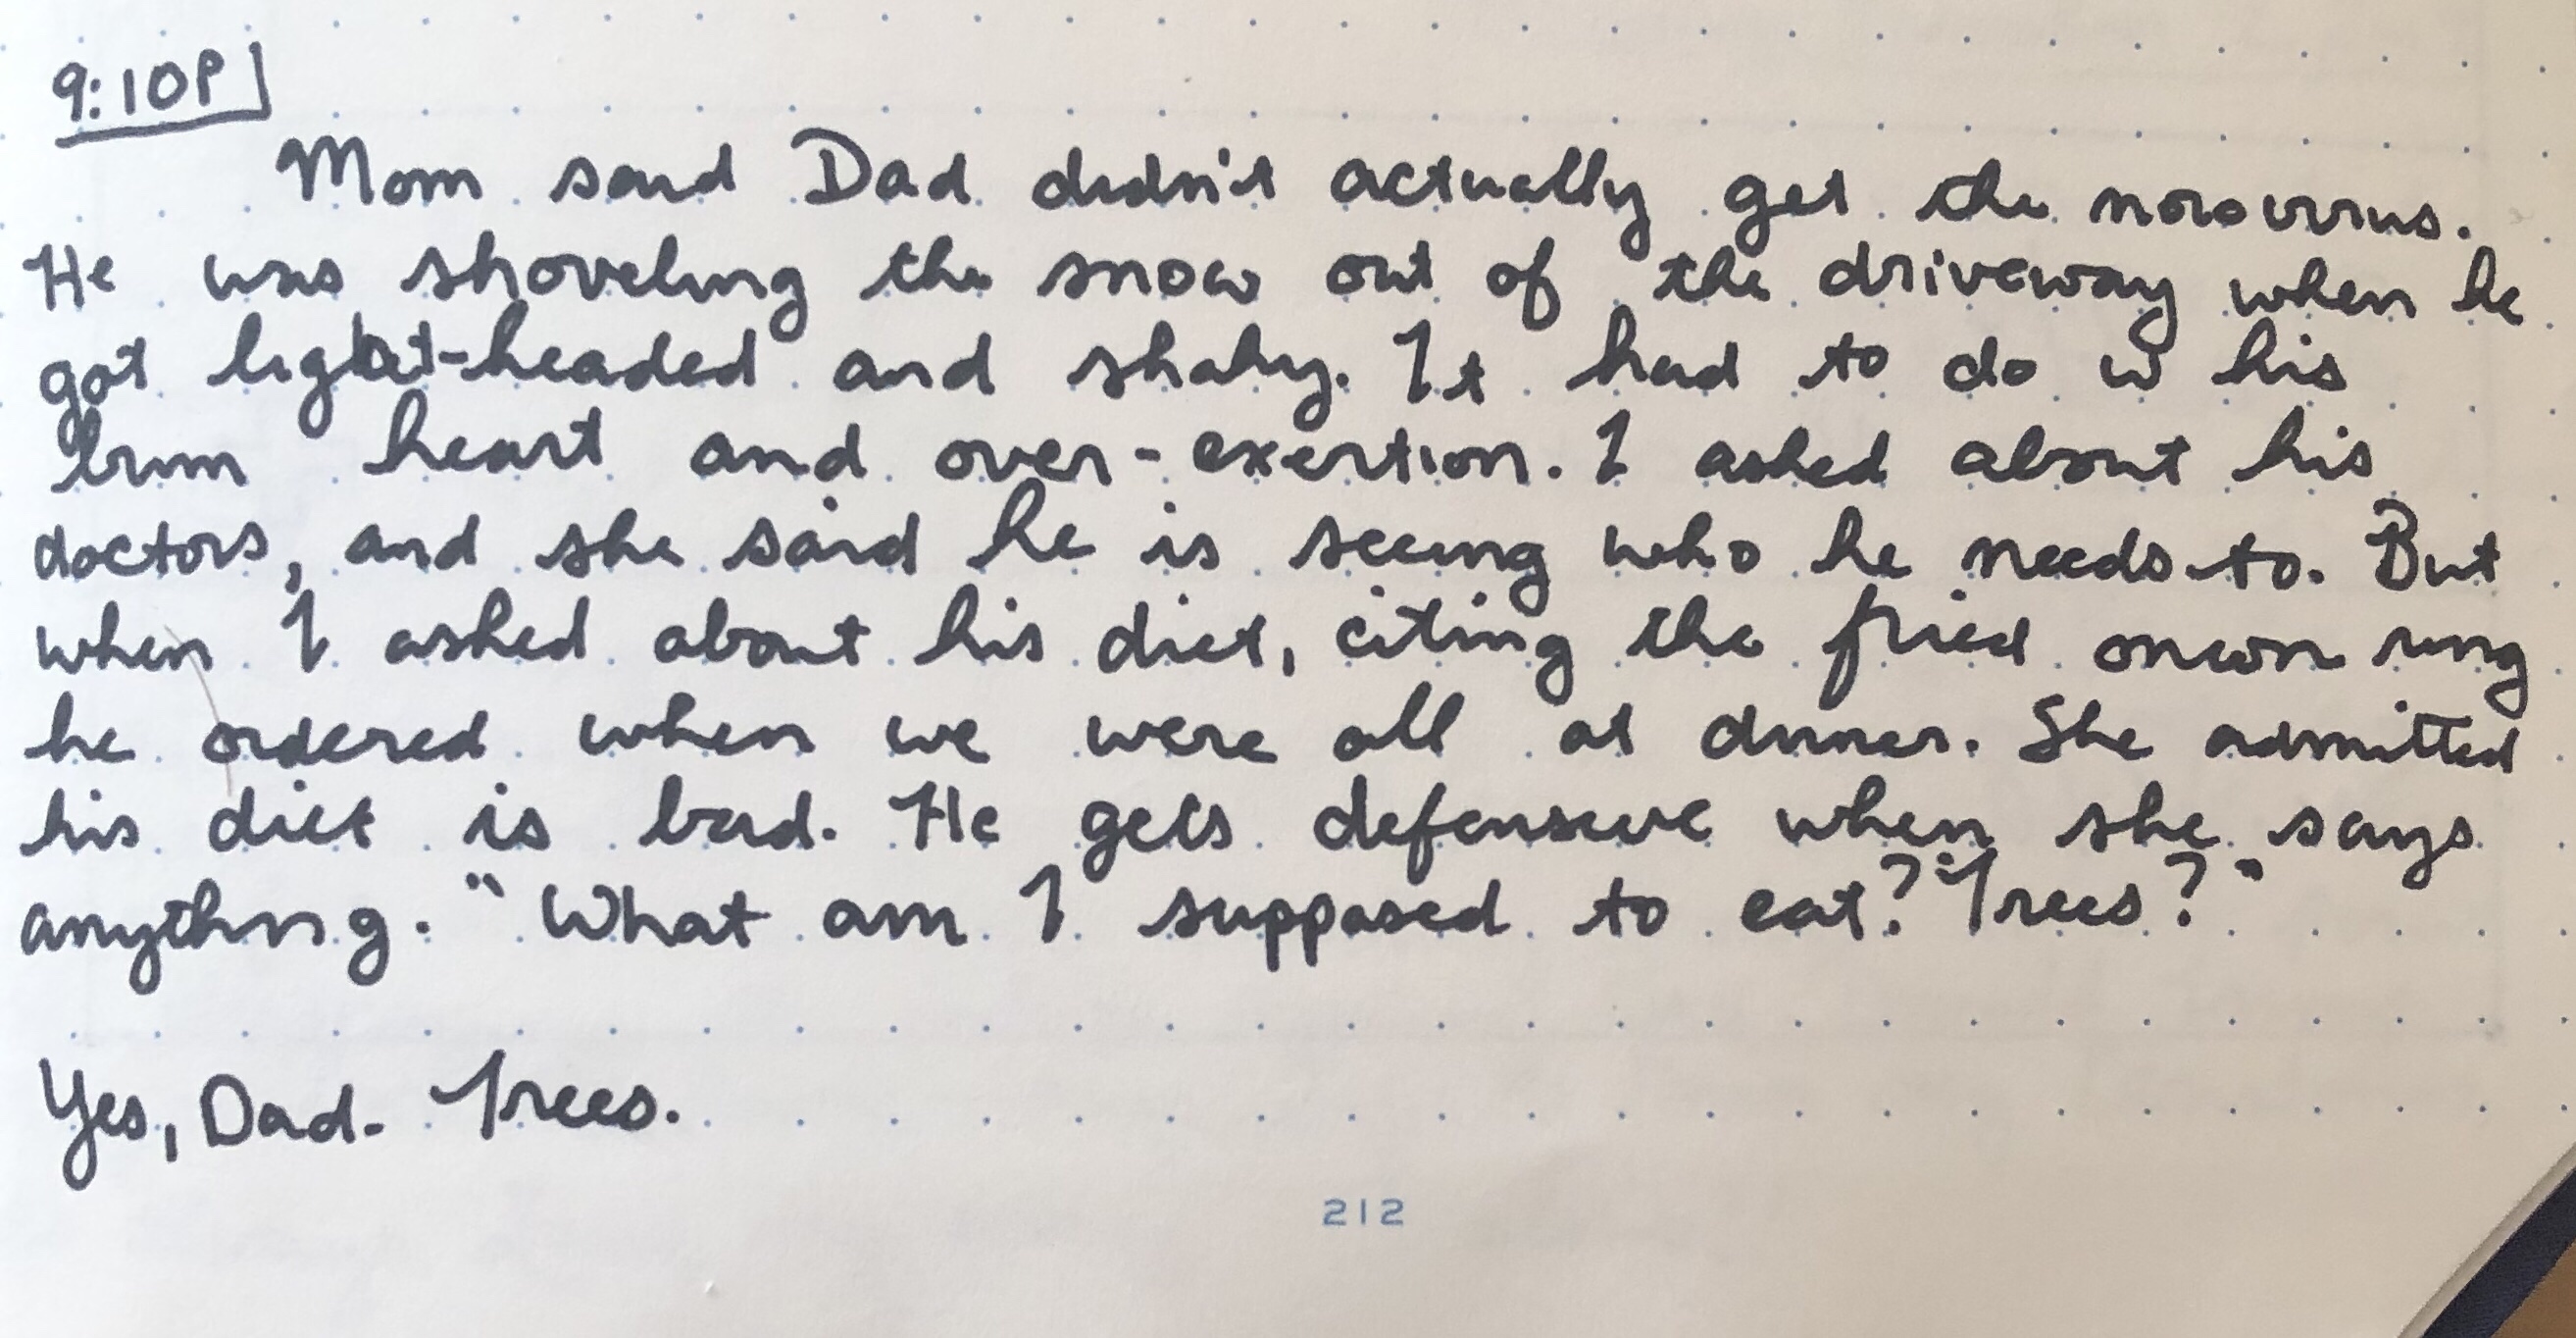 9:10P
Mom said Dad didn't actually get the norovirus.
He was shoveling the snow out of the driveway when he
got light-headed and shaky. It had to do w his
heart and over-exertion. I asked about his
doctors, and she said he is seeing who he needs to. But
when I asked about his diet, citing the fried onion ring
he ordered when we were all at dinner. She admitted
his diet is bad. He gets defensive when she says
anything. "What am I supposed to eat? Trees?"
Yes, Dad. Trees.
212